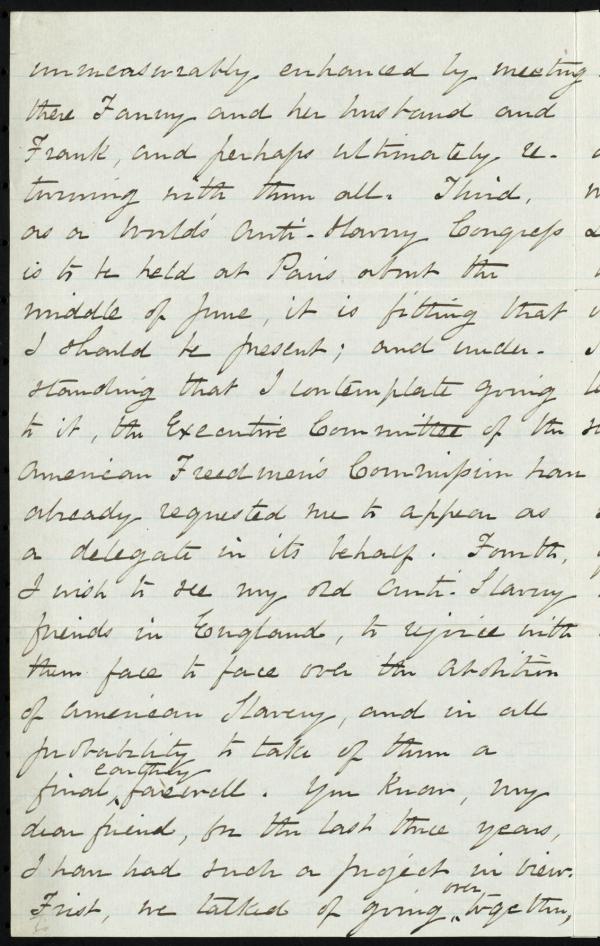 unmeasurably enhanced by meeting
there Fanny and her husband and
Frank, and perhaps ultimately re-
turning with them all. Third,
as a World's Anti-Slavery Congress
is to be held at Paris about the
middle of June, it is fitting that
I should be present; and under-
standing that I contemplate going
to it, the Executive Committee of the
American Freedmen's Commission have
already requested me to appear as
a delegate in its behalf. Fourth,
I wish to see my old Anti-Slavery
friends in England, to rejoice with
them face to face over the abolition
of American Slavery, and in all
probability to take of them a
final, earthly farewell. You know, my
dear friend, for the last three years,
I have had such a project in view.
First, we talked of going over together,